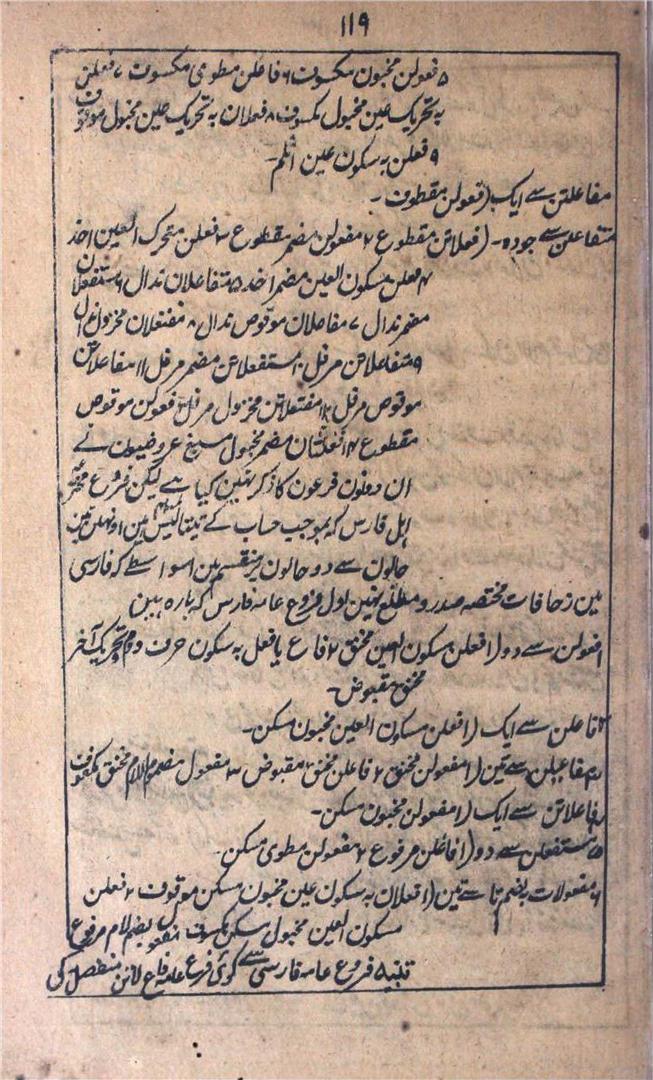 ۱۱۹
۵ فعولن مخبون مکسوف ۶ فاعلن مطوی مکسوف ۷ فعلن
به تحریک عین مخبول مکسوف ۸ فعلان به تحریک عین مخبول موقوف
۹ فعلن به سکون عین اثلم۔
مفاعلتن سے ایک (فعولن مقطوف۔
متفاعلن سے جودہ۔ (فعلاتن مقطوع ۲ مفعولن مضمر مقطوع ۳ فعلن متحرک العین احذ
۴ فعلن مسکون العین مضمر احذ ۵ متفاعلان ندال ۶ مستفعلان
مضمر ندال ۷ مفاعلان موقوص ندال ۸ مفتعلان مخزول ندال
۹ متفاعلاتن مرفل ۱۰ مستفعلاتن مضمر مرفل ۱۱ مفاعلاتن
موقوص مرفل ۱۲ مفتعلاتن مخزول مرفل ۱۳ فعولن موقوص
مقطوع ۱۴ فعلتان مضمر مخبول مسبغ عروضیون نے
ان دونون فرعون کا ذکر نہین کیا ہے لیکن فروع مختصہ
اہل فارس کہ بموجب حساب کے تینتالیس ہین او نہین تین
حالون سے دو حالون پر منقسم ہین اسواسطے کہ فارسی
مین زحافات مختصہ صدر و مطلع نہین اول فروع عامہ فارس کہ بارہ ہین
۱ فعولن سے دو (۱ فعلن مسکون العین مخنق ۲ فاع یا فعل بہ سکون حرف دوم و تحریک آخر
مخنق مقبوض۔
۲ فاعلن سے ایک (۱ فعلن مسکون العین مخبون مسکن۔
۳ مفاعیلن سے تین (۱ مفعولن مخنق ۲ فاعلن مخنق مقبوض ۳ مفعول مضموم اللام مخنق مکفوف
۴ فاعلاتن سے ایک (۱ مفعولن مخبون مسکن۔
۵ مستفعلن سے دو (۱ فاعلن مرفوع ۲ مفعولن مطوی مسکن۔
۶ مفعولات بضم تا سے تین (۱ فعلان بہ سکون عین مخبون مسکن موقوف ۲ فعلن
مسکون العین مخبول مسکن مکسوف ۳ مفعول بضم لام مرفوع
تنبیہ فروع عامہ فارسی سے کوئی فرع عامہ فاع لاتن منفصل کی